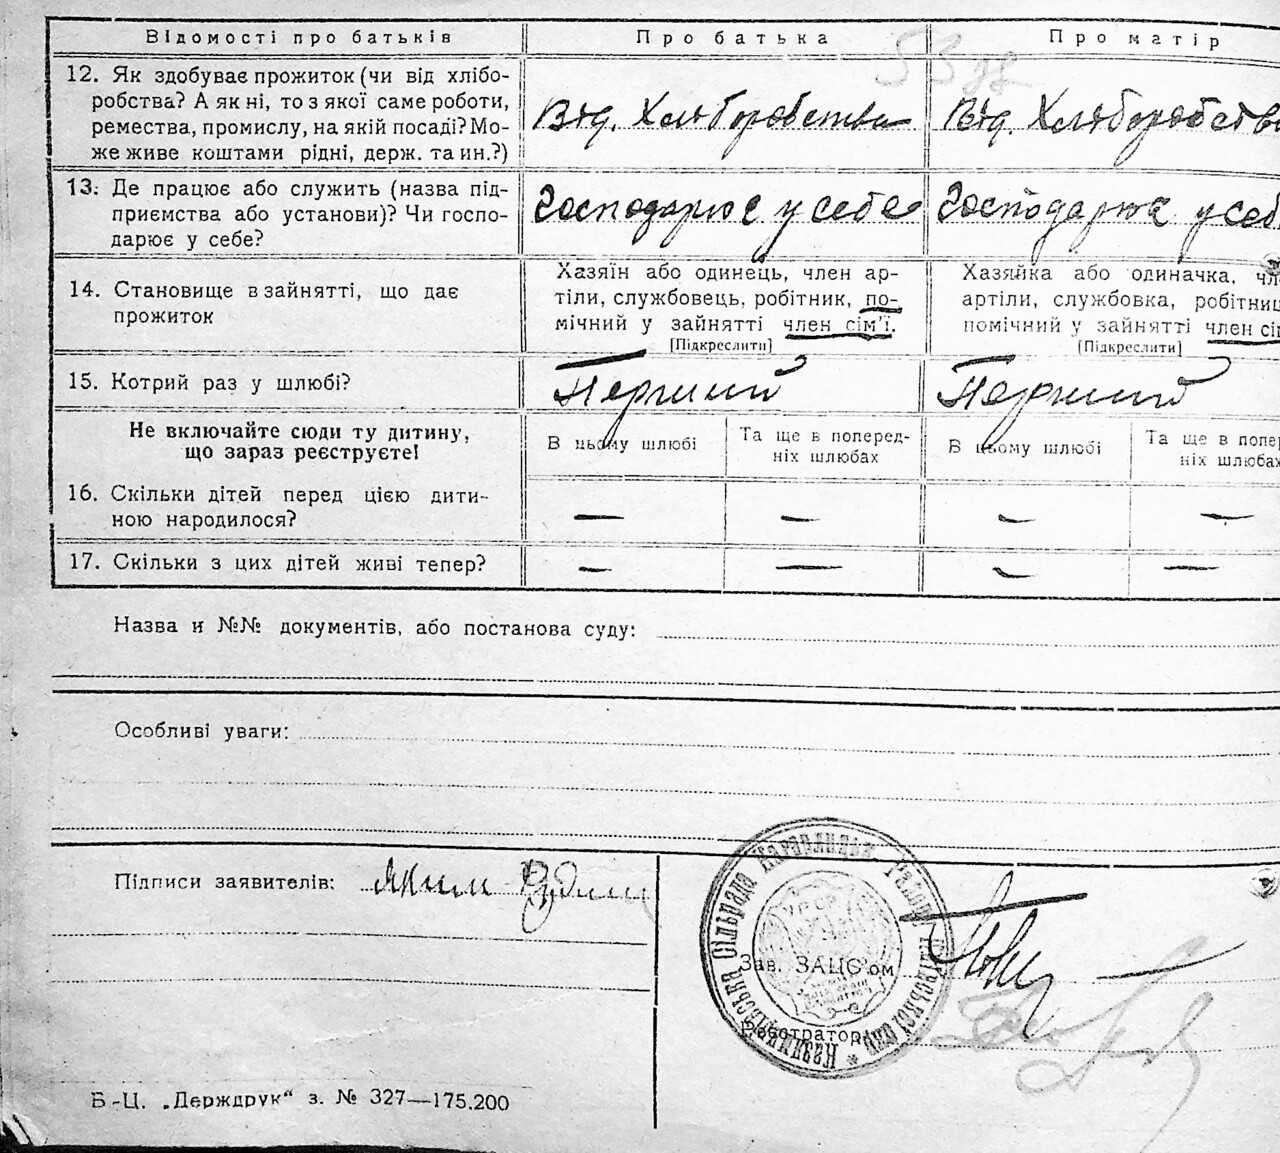 Відомості про батьків
Про батька
Про матір
12. Як здобуває прожиток (чи від хлібо-
робства? А як ні, то з якої саме роботи,
ремества, промислу, на якій посаді? Мо-
же живе коштами рідні, держ. та ин.?)
Від. Хліборобства
Від. Хліборобства
13. Де працює або служить (назва під-
приємства або установи)? Чи госпо-
дарює у себе?
Господарює у себе
Господарює у себ
14. Становище в зайнятті, що дає
прожиток
Хазяїн або одинець, член ар-
тіли, службовець, робітник, по-
мічний у зайнятті член сім'ї.
[Підкреслити]
Хазяйка або одиначка, чл
артіли, службовка, робітниц
помічний у зайнятті член сім
[Підкреслити]
15. Котрий раз у шлюбі?
Перший
Перший
Не включайте сюди ту дитину,
що зараз реєструєте!
В цьому шлюбі
Та ще в поперед-
ніх шлюбах
В цьому шлюбі
Та ще в попер
ніх шлюбах
16. Скільки дітей перед цією дити-
ною народилося?
— — — —
17. Скільки з цих дітей живі тепер?
— — — —
Назва и №№ документів, або постанова суду:
Особливі уваги:
Підписи заявителів: Яким
Сільрада Кагарлицьк
УРСР
Зав. ЗАЦС'ом
Реєстратор
Б-Ц. „Держдрук“ з. № 327—175.200